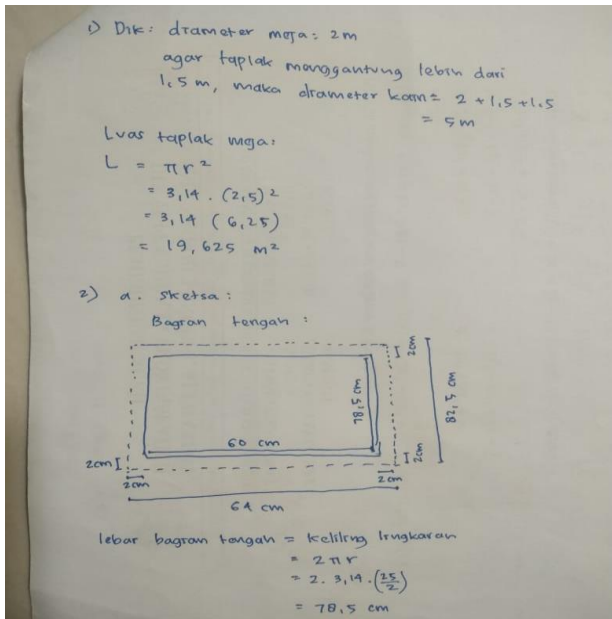 1) Dik: diameter meja: 2m
agar taplak menggantung lebih dari
1,5 m, maka diameter kain = 2 + 1,5 + 1,5
= 5m
Luas taplak meja:
L = πr²
= 3,14 . (2,5)²
= 3,14 (6,25)
= 19,625 m²
2) a. Sketsa:
Bagian tengah :
2cm
78,5 cm
82,5 cm
60 cm
2cm
2cm
2cm
2cm
64 cm
lebar bagian tengah = keliling lingkaran
= 2πr
= 2. 3,14. (25/2)
= 78,5 cm